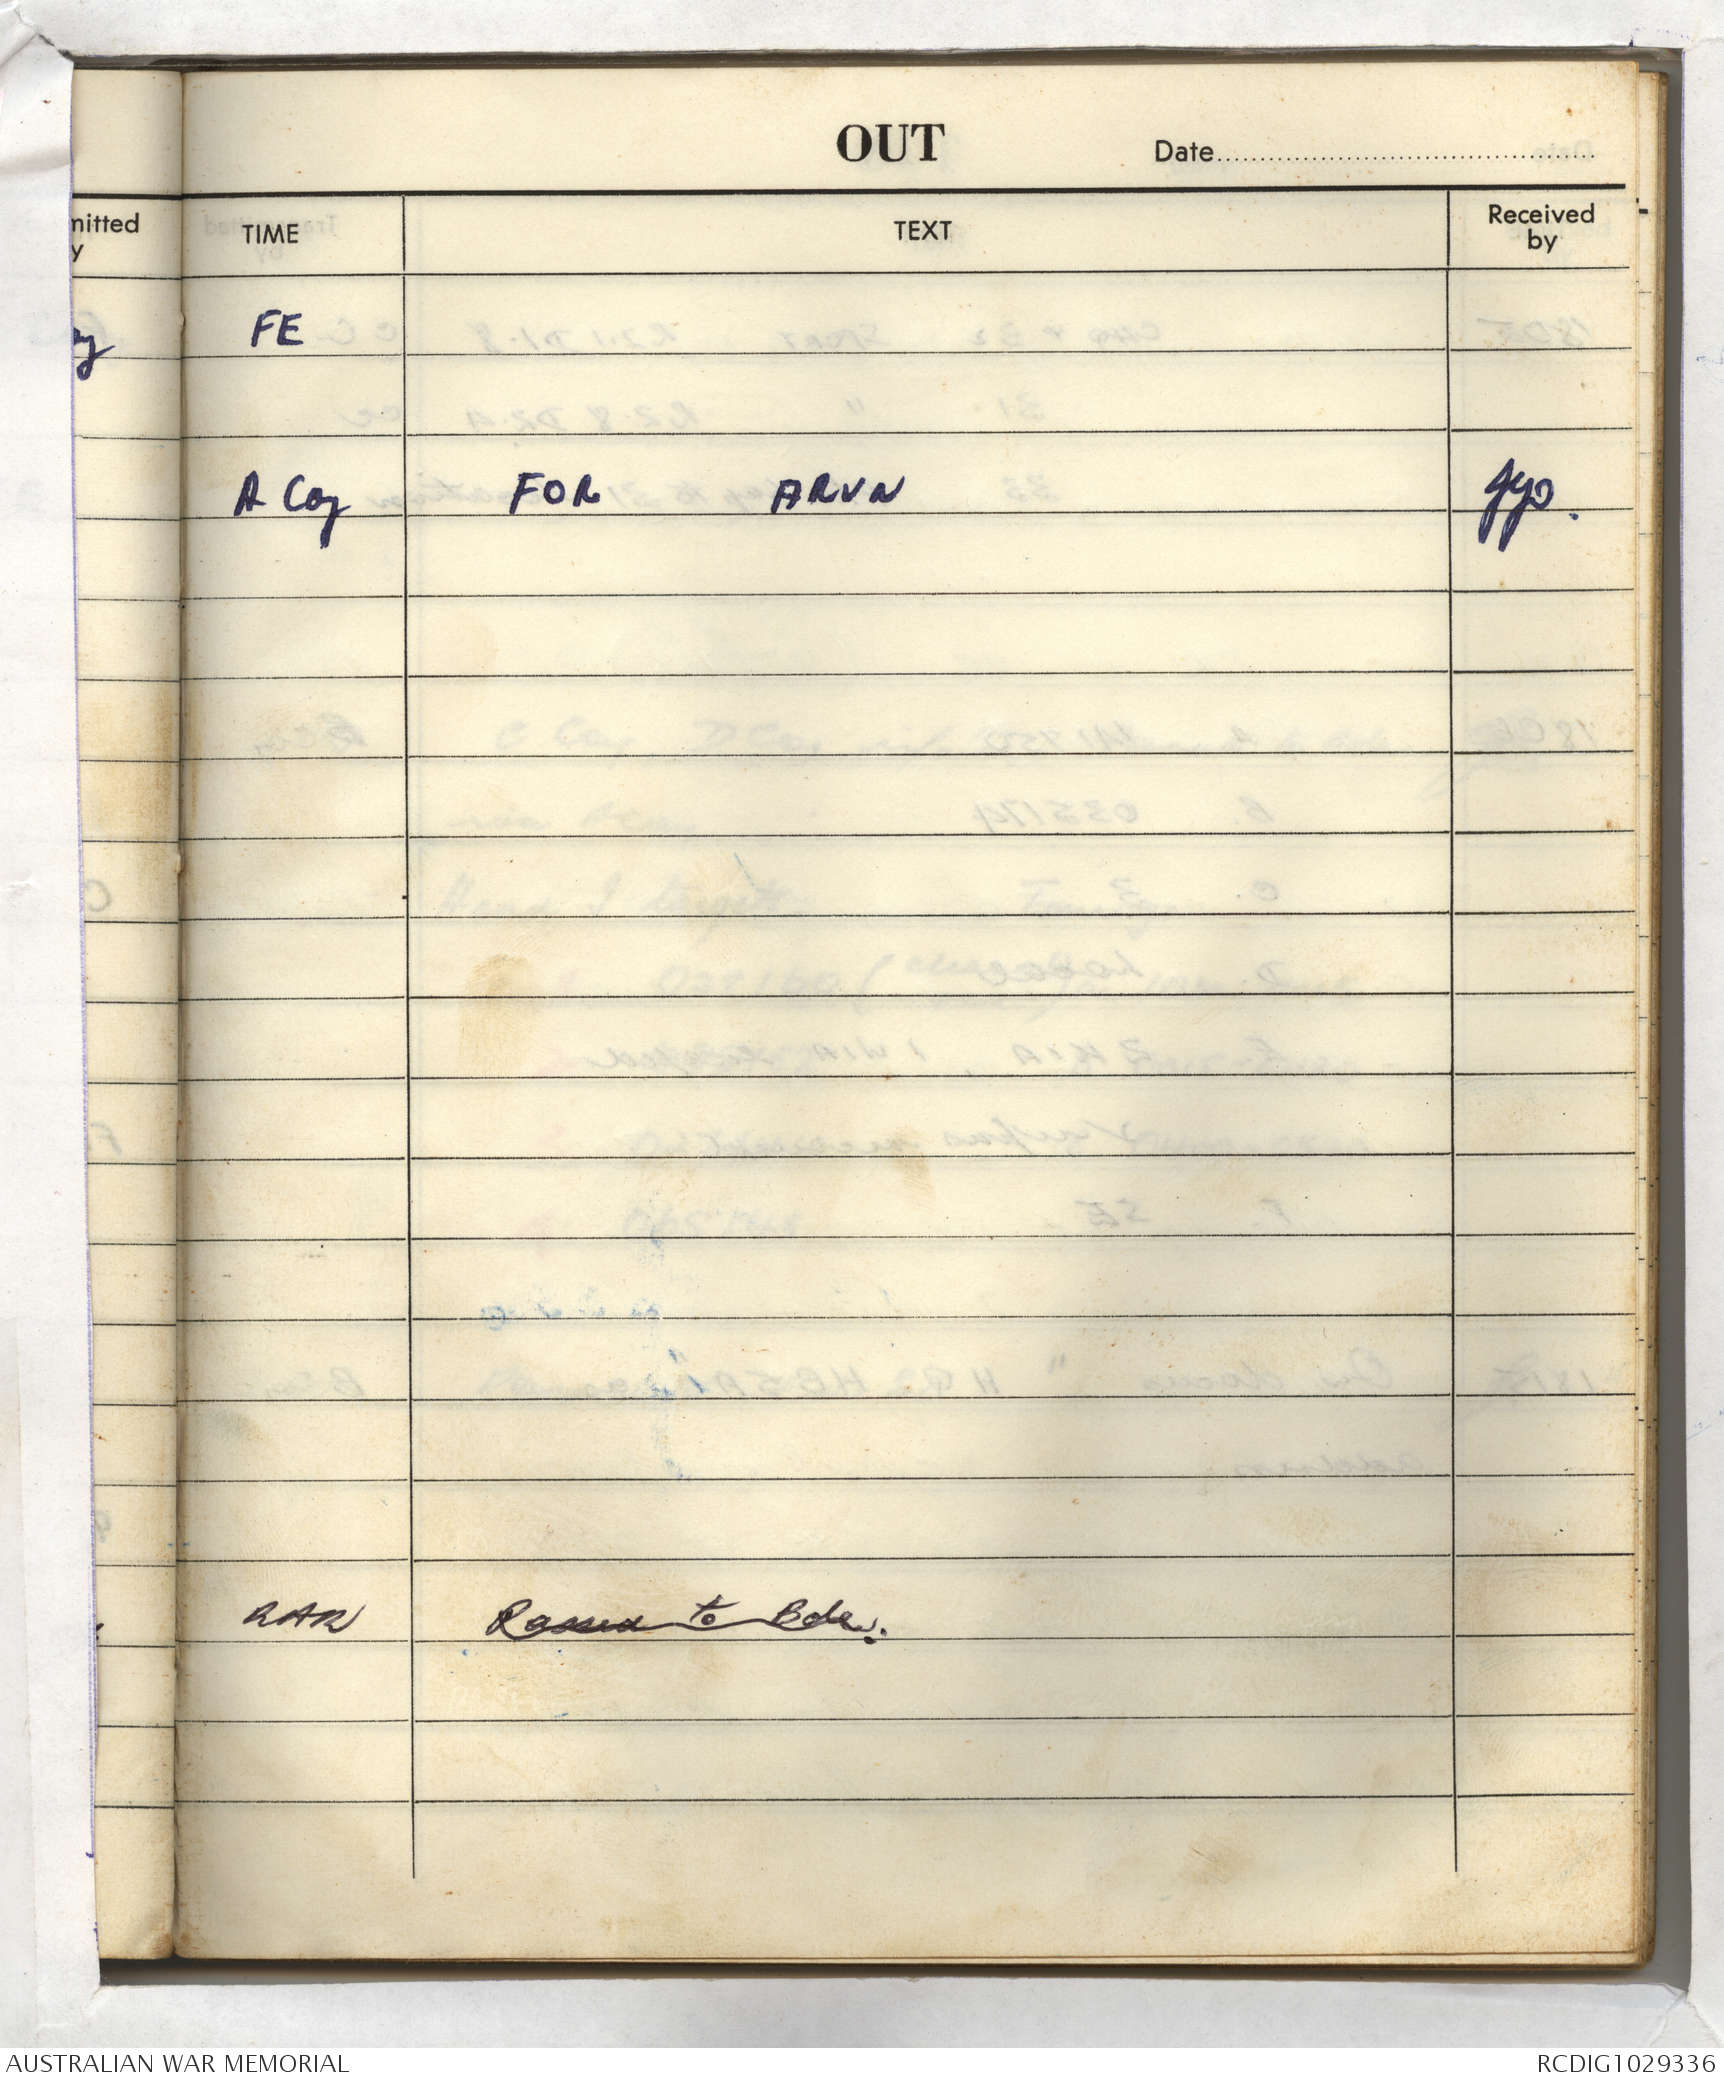 OUT
Date
mitted
y
TIME
TEXT
Received
by
FE
A Coy FOR ARVN
RAR Passed to Bde.
AUSTRALIAN WAR MEMORIAL
RCDIG1029336